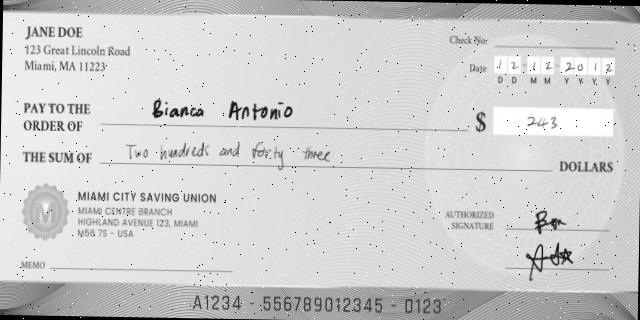 JANE DOE
123 Great Lincoln Road
Miami, MA 11223
Check No:
Date 12-12-2012
D D M M Y Y Y Y
PAY TO THE ORDER OF Bianca Antonio
$ 243
THE SUM OF Two hundreds and forty three DOLLARS
MIAMI CITY SAVING UNION
MIAMI CENTRE BRANCH
HIGHLAND AVENUE 123, MIAMI
M56 7S - USA
M
AUTHORIZED SIGNATURE
MEMO
A1234 - 556789012345 - 0123